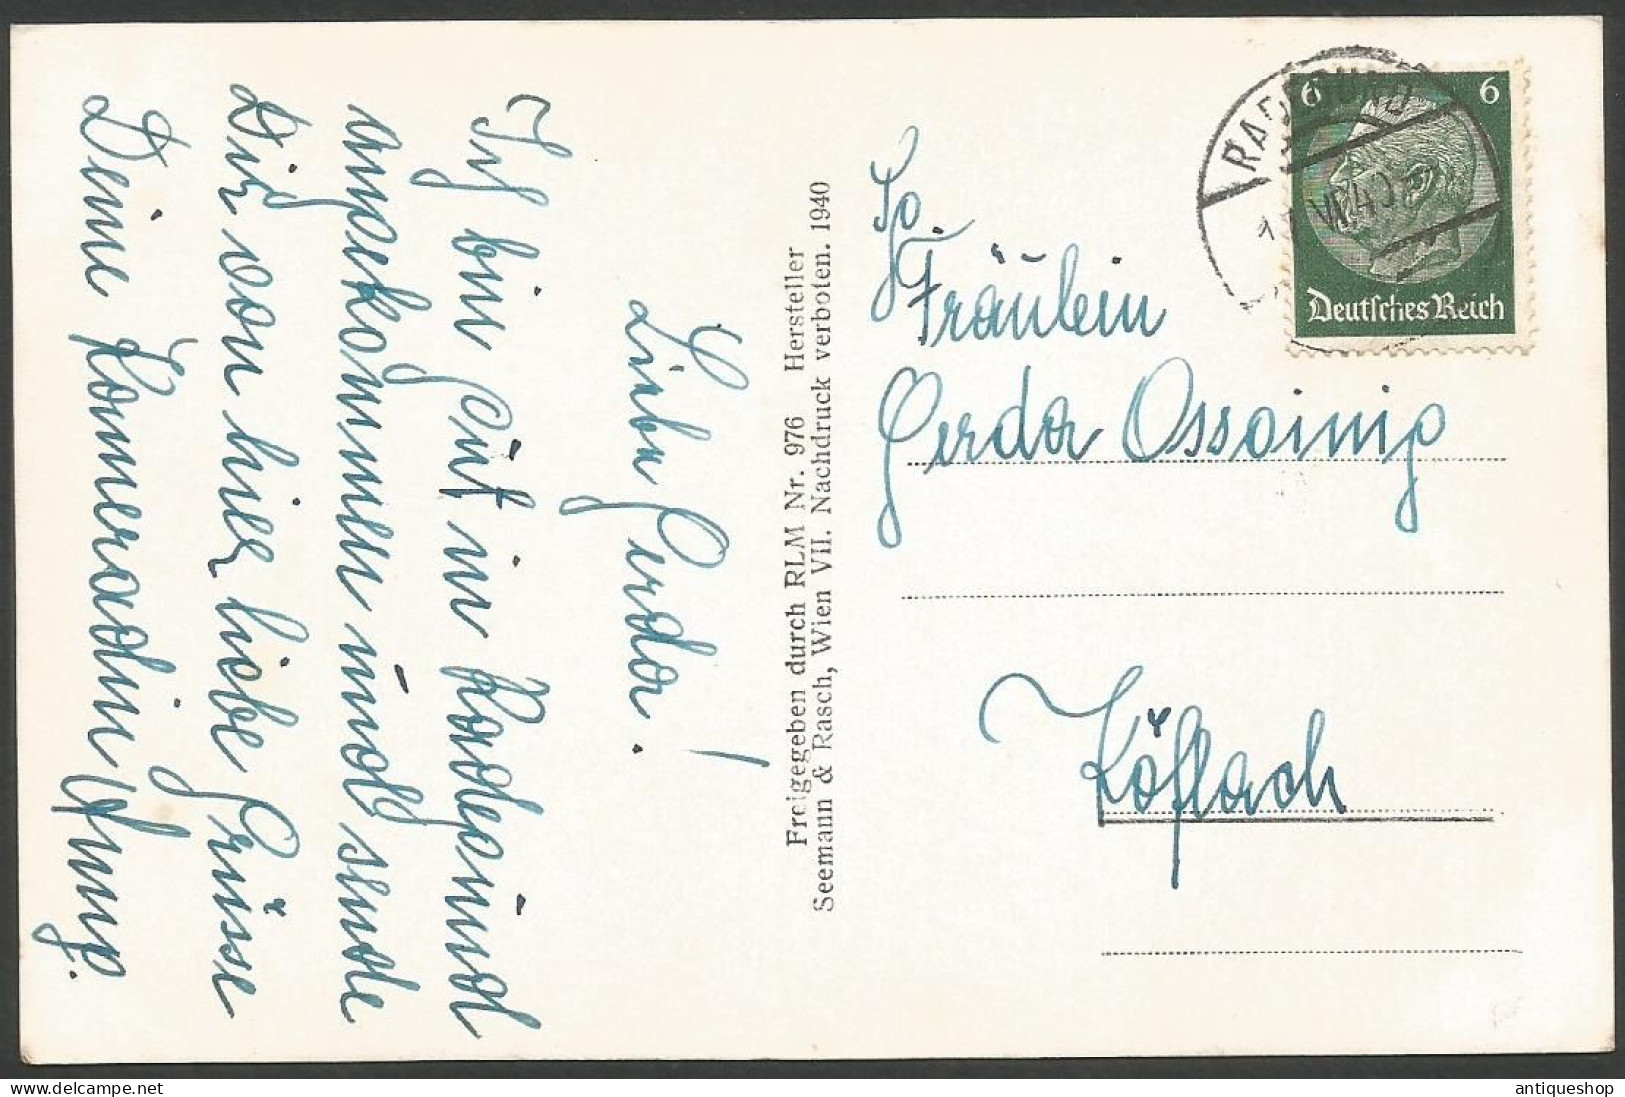 Liebe Gerda!
Ich bin gut in Radegund
angekommen und sende
Dir von hier liebe Grüsse
Deine Kameradin
Freigegeben durch RLM Nr. 976 Hersteller
Seemann & Rasch, Wien VII. Nachdruck verboten. 1940
Fräulein
Gerda Ossoinig
Köflach
6 6
Deutsches Reich
RADEGUND
VII 40
antiqueshop